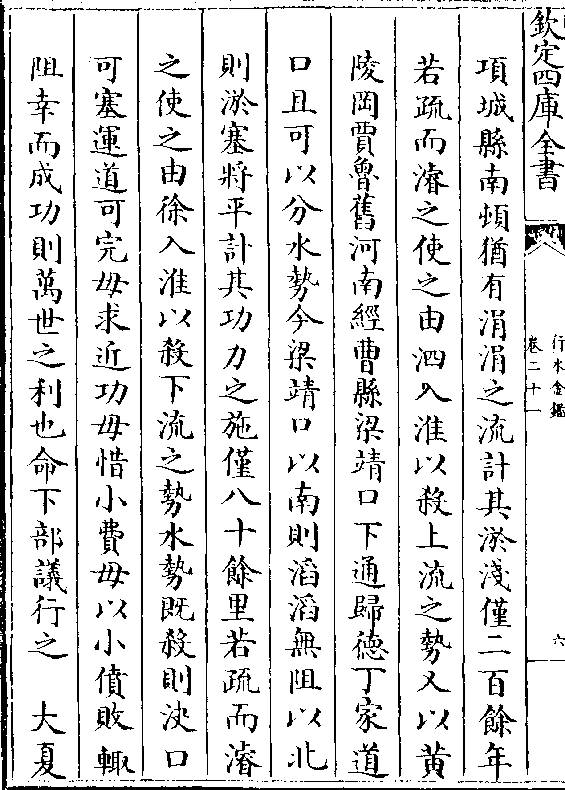 欽定四庫全書
行水金鑑
卷二十一
六
項城縣南頓猶有涓涓之流計其淤淺僅二百餘年
若疏而濬之使之由泗入淮以殺上流之勢又以黃
陵岡賈魯舊河南經曹縣梁靖口下通歸德丁家道
口且可以分水勢今梁靖口以南則滔滔無阻以北
則淤塞將平計其功力之施僅八十餘里若疏而濬
之使之由徐入淮以殺下流之勢水勢既殺則決口
可塞運道可完毋求近功毋惜小費毋以小僨敗輙
阻幸而成功則萬世之利也命下部議行之　大夏